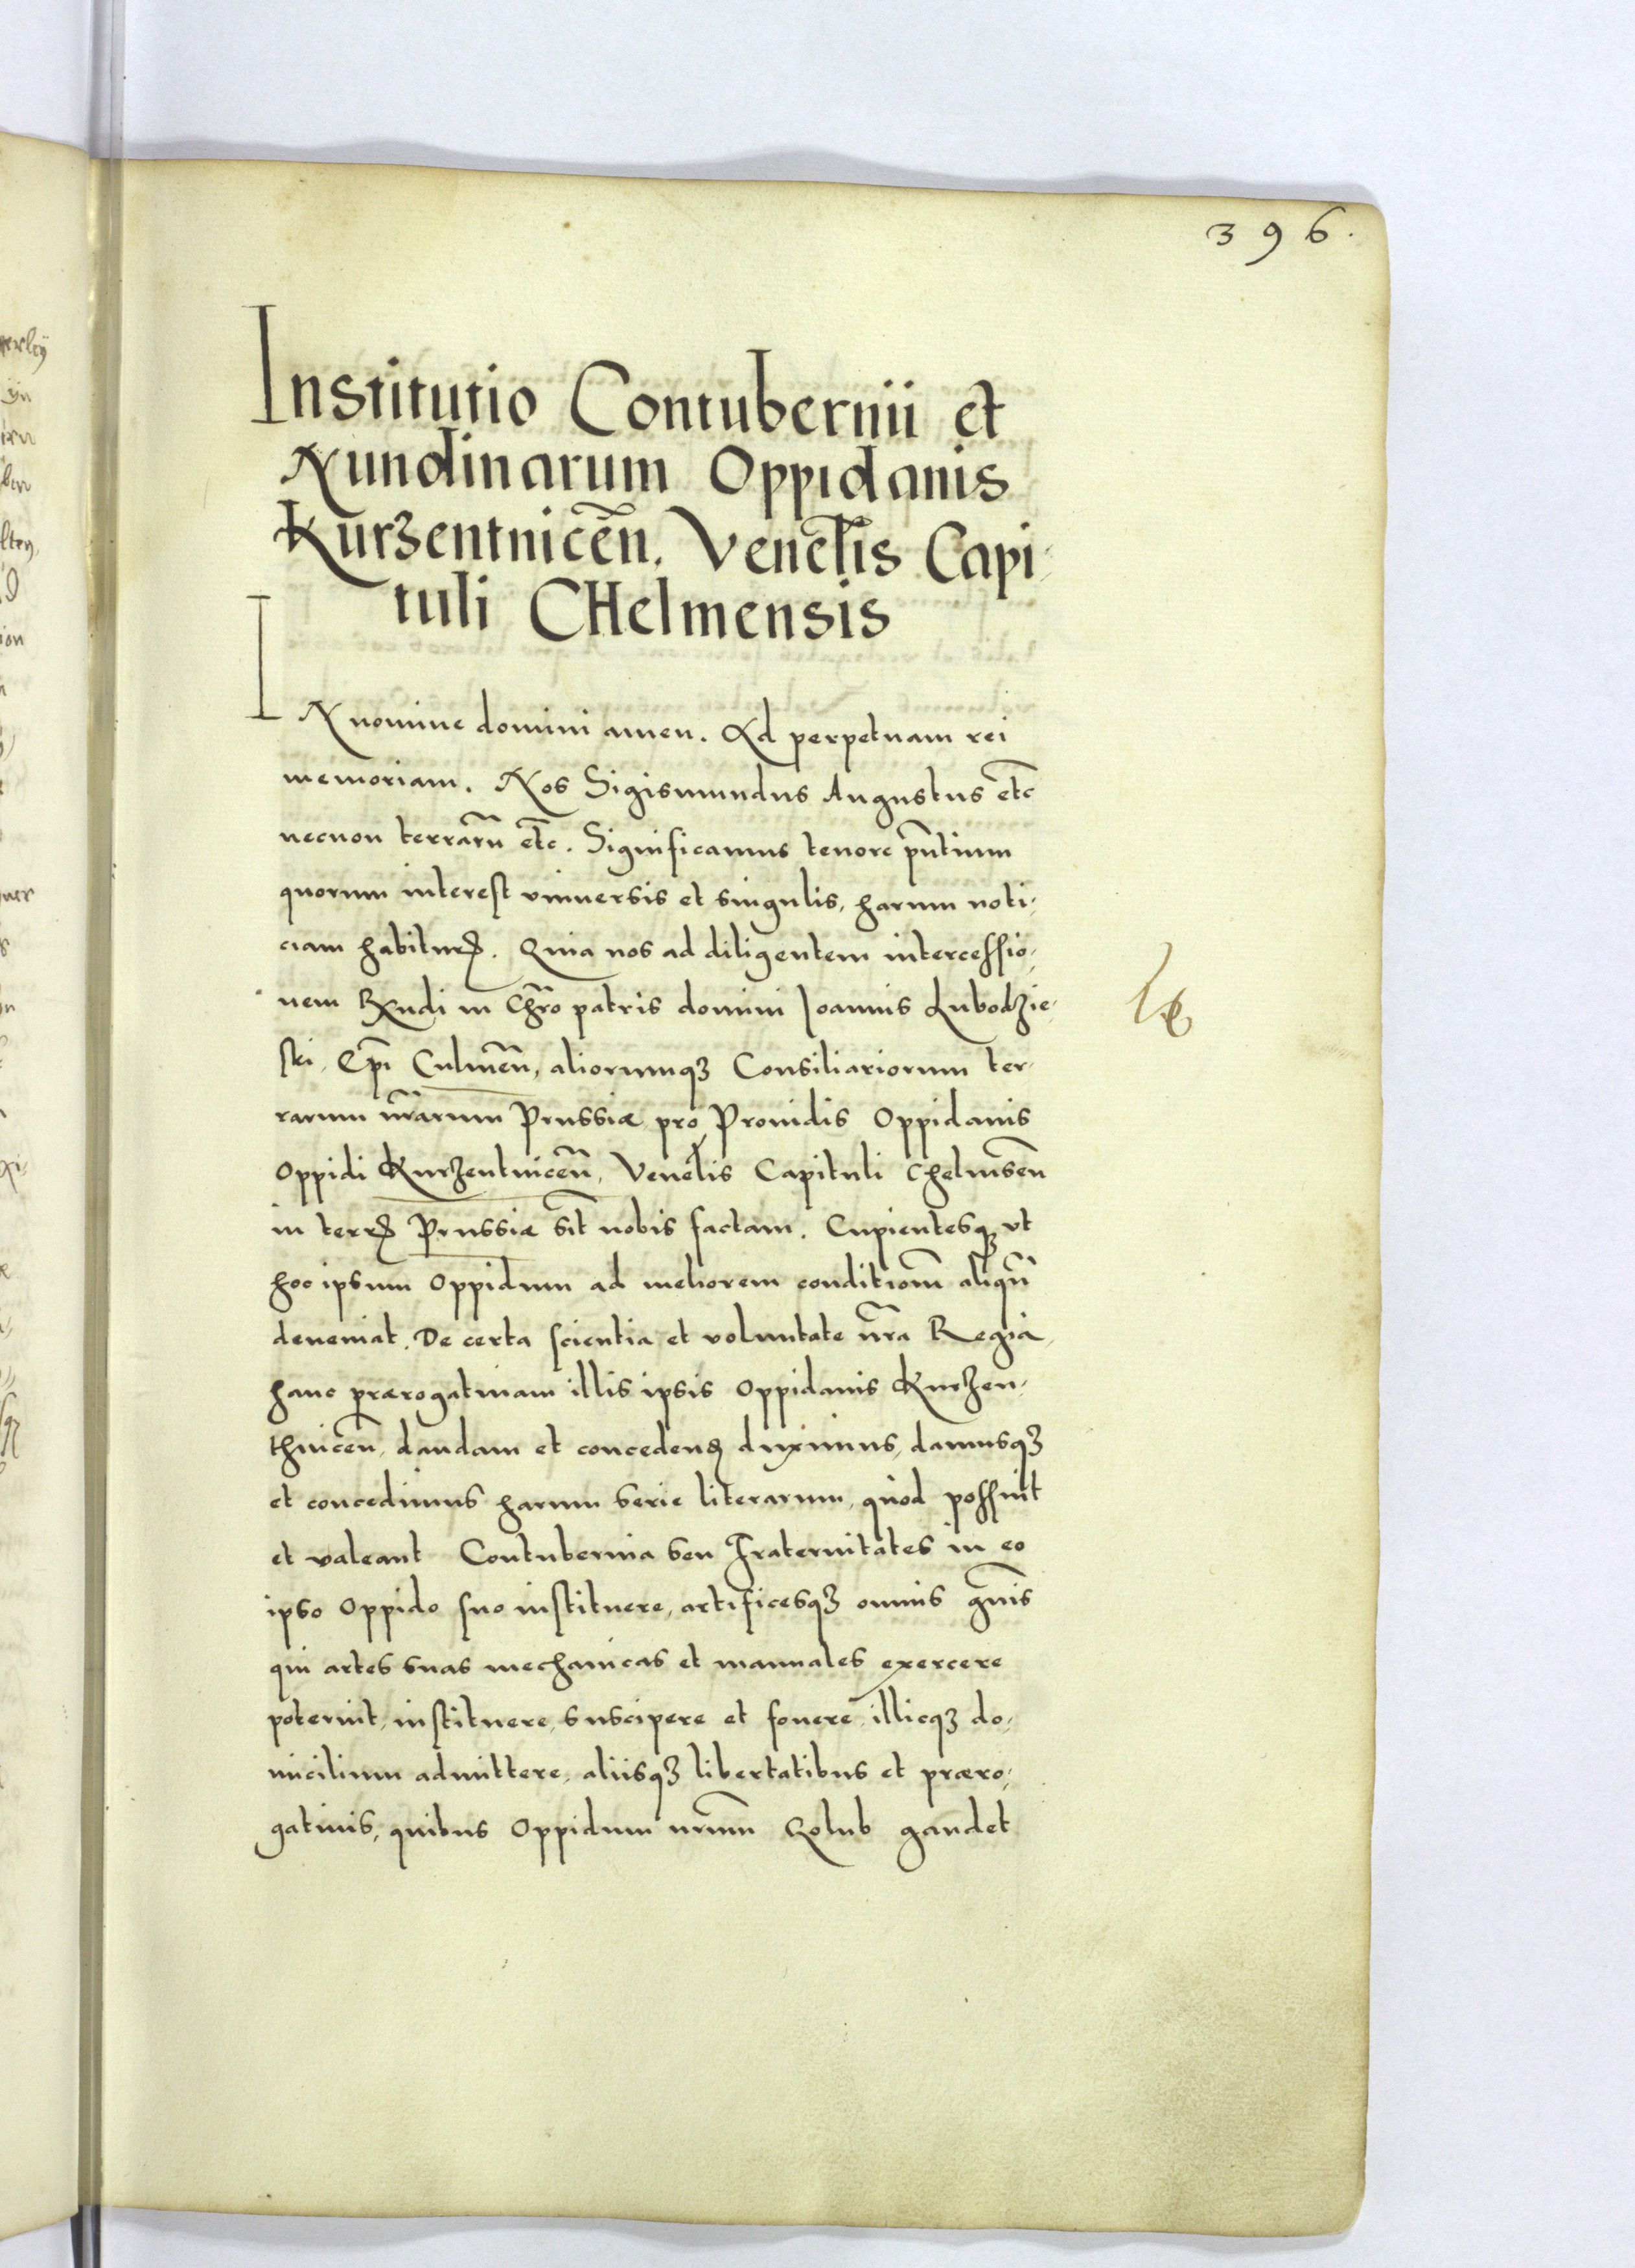 396.
Institutio Contubernii et
Nundinarum Oppidanis
Kurzentnicen̄. Venēlis Capi-
tuli CHelmensis
IN nomine domini amen. Ad perpetuam rei
memoriam. Nos Sigismundus Augustus etc̄
necnon terrarū etc̄. Significamus tenore p̄ntium
quorum interest vniuersis et singulis, harum noti-
ciam habituꝝ. Quia nos ad diligentem intercessio-
nem Rx̄ndi in Chr̄o patris domini Joannis Lubodzie-
ski, Ep̄i Culmen̄, aliorumqꝫ Consiliariorum ter-
rarum nr̄arum Prussiæ pro Prouidis Oppidanis
Oppidi Kurzentnicen̄, Venēlis Capituli Chelmsen̄
in terꝝ Prussiæ sit̄ nobis factam. Cupientesqꝫ vt
hoc ipsum Oppidum ad meliorem conditionem̄ aliqn̄
deueniat. De certa scientia et voluntate nr̄a Regia,
hanc prærogatiuam illis ipsis Oppidanis Kurzen-
thnicen̄, dandam et concedenꝺ duximus, damusqꝫ
et concedimus harum serie literarum, quòd possint
et valeant Contubernia seu Fraternitates in eo
ipso Oppido suo instituere, artificesqꝫ omnis gn̄is
qui artes suas mechanicas et manuales exercere
poterint, instituere, suscipere et fouere, illicqꝫ do-
micilium admittere, aliisqꝫ libertatibus et præro-
gatiuis, quibus Oppidum nr̄um Golub gaudet